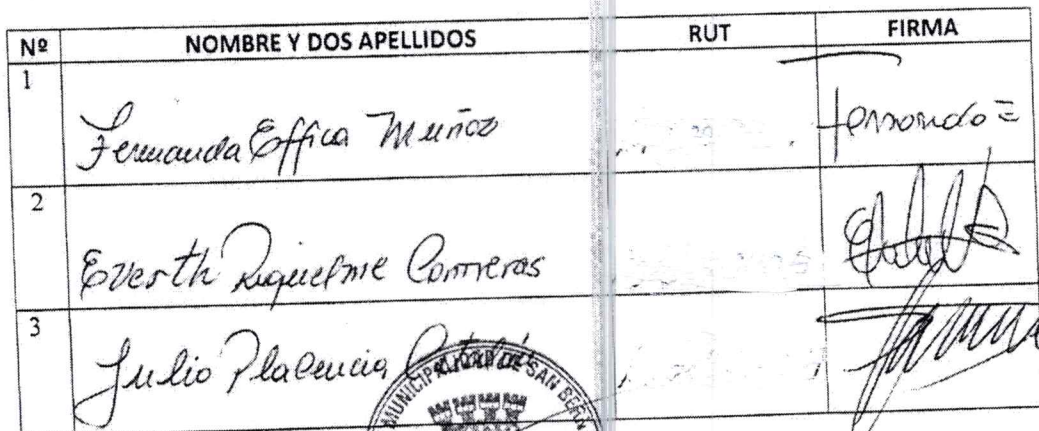 Nº NOMBRE Y DOS APELLIDOS RUT FIRMA
1 Fernanda Effica Muñoz Fernanda E
2 Everth Riquelme Contreras
3 Julio Placencia
MUNICIPALIDAD DE SAN BERN